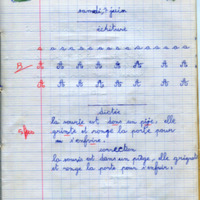 samedi, 7 juin
écriture
a a a a a a a a a a a a a
B A A A A A A A
A A A A A A
dictée
la souris est dans un piße. elle
grimte et ronge la porte pour
s'enfuire.
correction
la souris est dans un piège, elle grignote
et ronge la porte pour s'enfuir.